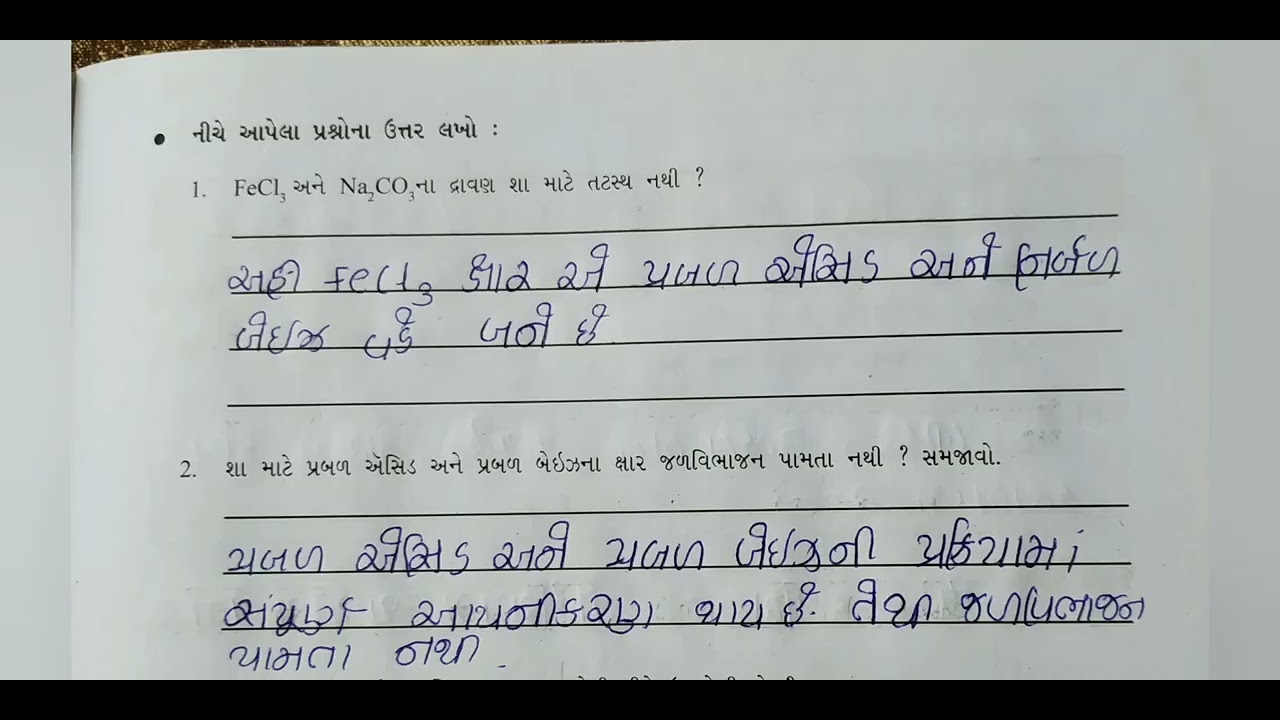 • નીચે આપેલા પ્રશ્નોના ઉત્તર લખો :
1. FeCl₃ અને Na₂CO₃ના દ્રાવણ શા માટે તટસ્થ નથી ?
અહી FeCl₃ ક્ષાર એ પ્રબળ એસિડ અને નિર્બળ
બેઇઝ વડે બને છે.
2. શા માટે પ્રબળ ઍસિડ અને પ્રબળ બેઇઝના ક્ષાર જળવિભાજન પામતા નથી ? સમજાવો.
પ્રબળ એસિડ અને પ્રબળ બેઇઝની પ્રક્રિયામાં
સંપૂર્ણ આયનીકરણ થાય છે. તેથી જળવિભાજન
પામતા નથી.